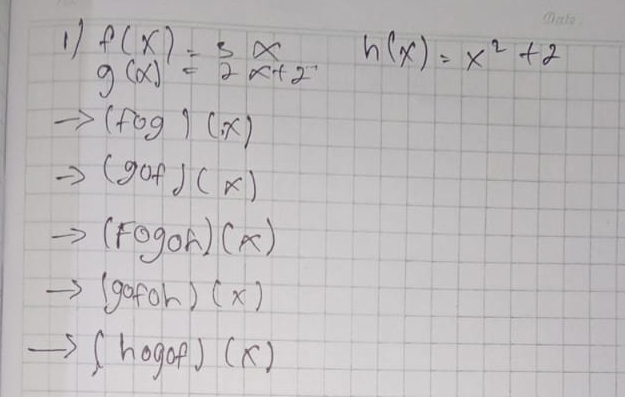 Date
1) f(x) = 3x h(x) = x² + 2
g(x) = 2x+2
→ (fog) (x)
→ (gof) (x)
→ (Fogoh) (x)
→ (gofoh) (x)
→ (hogof) (x)